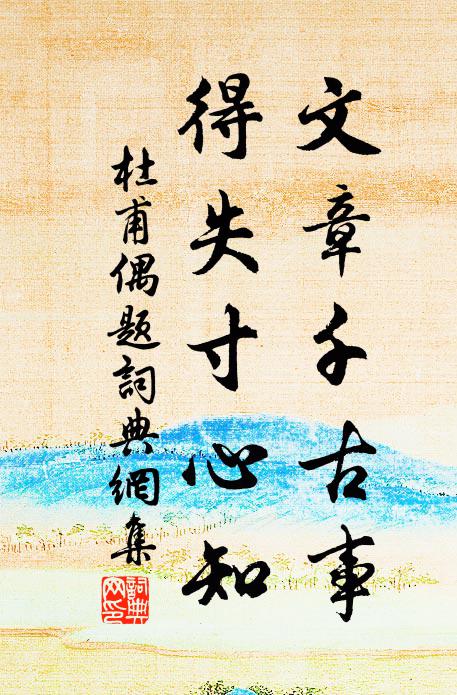 文章千古事
得失寸心知
杜甫偶題詞典網集
詞典網印